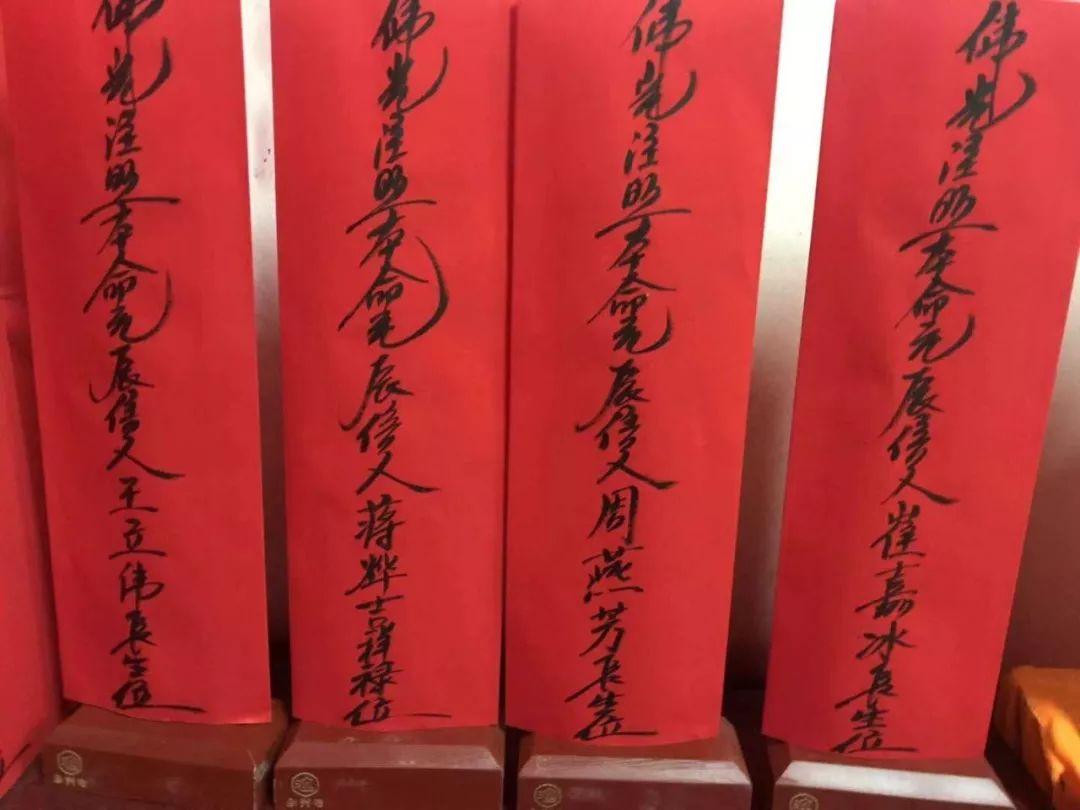 佛光注照本命元辰信人王立伟长生位
佛光注照本命元辰信人蒋烨吉祥禄位
佛光注照本命元辰信人周燕芳长生位
佛光注照本命元辰信人崔嘉冰长生位